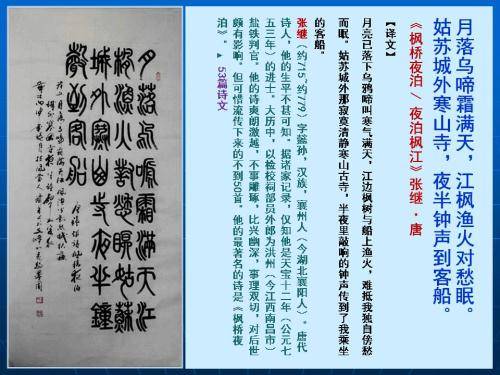 月落乌啼霜满天，江枫渔火对愁眠。
姑苏城外寒山寺，夜半钟声到客船。
《枫桥夜泊 / 夜泊枫江》张继 · 唐
【译文】
月亮已落下乌鸦啼叫寒气满天，江边枫树与船上渔火，难抵我独自傍愁
而眠。姑苏城外那寂寞清静寒山古寺，半夜里敲响的钟声传到了我乘坐
的客船。
张继（约715~约779）字懿孙，汉族，襄州人（今湖北襄阳人）。唐代
诗人，他的生平不甚可知。据诸家记录，仅知他是天宝十二年（公元七
五三年）的进士。大历中，以检校祠部员外郎为洪州（今江西南昌市）
盐铁判官。他的诗爽朗激越，不事雕琢，比兴幽深，事理双切，对后世
颇有影响。但可惜流传下来的不到50首。他的最著名的诗是《枫桥夜
泊》。 ▲ 53篇诗文
月落烏啼霜滿天江
楓漁火對愁眠姑蘇
城外寒山寺夜半鐘
聲到客船